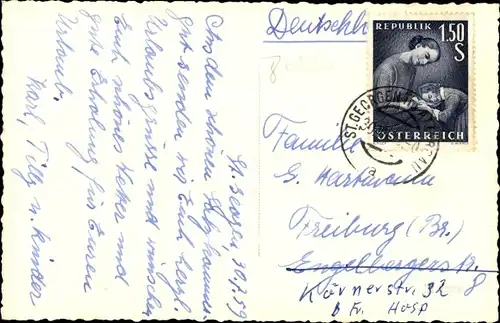 St. Georgen 30.7.59
Aus dem schönen Salzkammer-
gut senden wir Euch herzl.
Urlaubsgrüße und wünschen
Euch schönes Wetter und
gute Erholung für Euren
Urlaub.
Karl, Tilly u. Kinder
Deutschl
8
REPUBLIK
1.50
S
ÖSTERREICH
ST. GEORGEN
Familie
G. Hartmann
Freiburg (Br.)
Engelbergerstr. 8
Körnerstr. 32
b Fr. Hasp